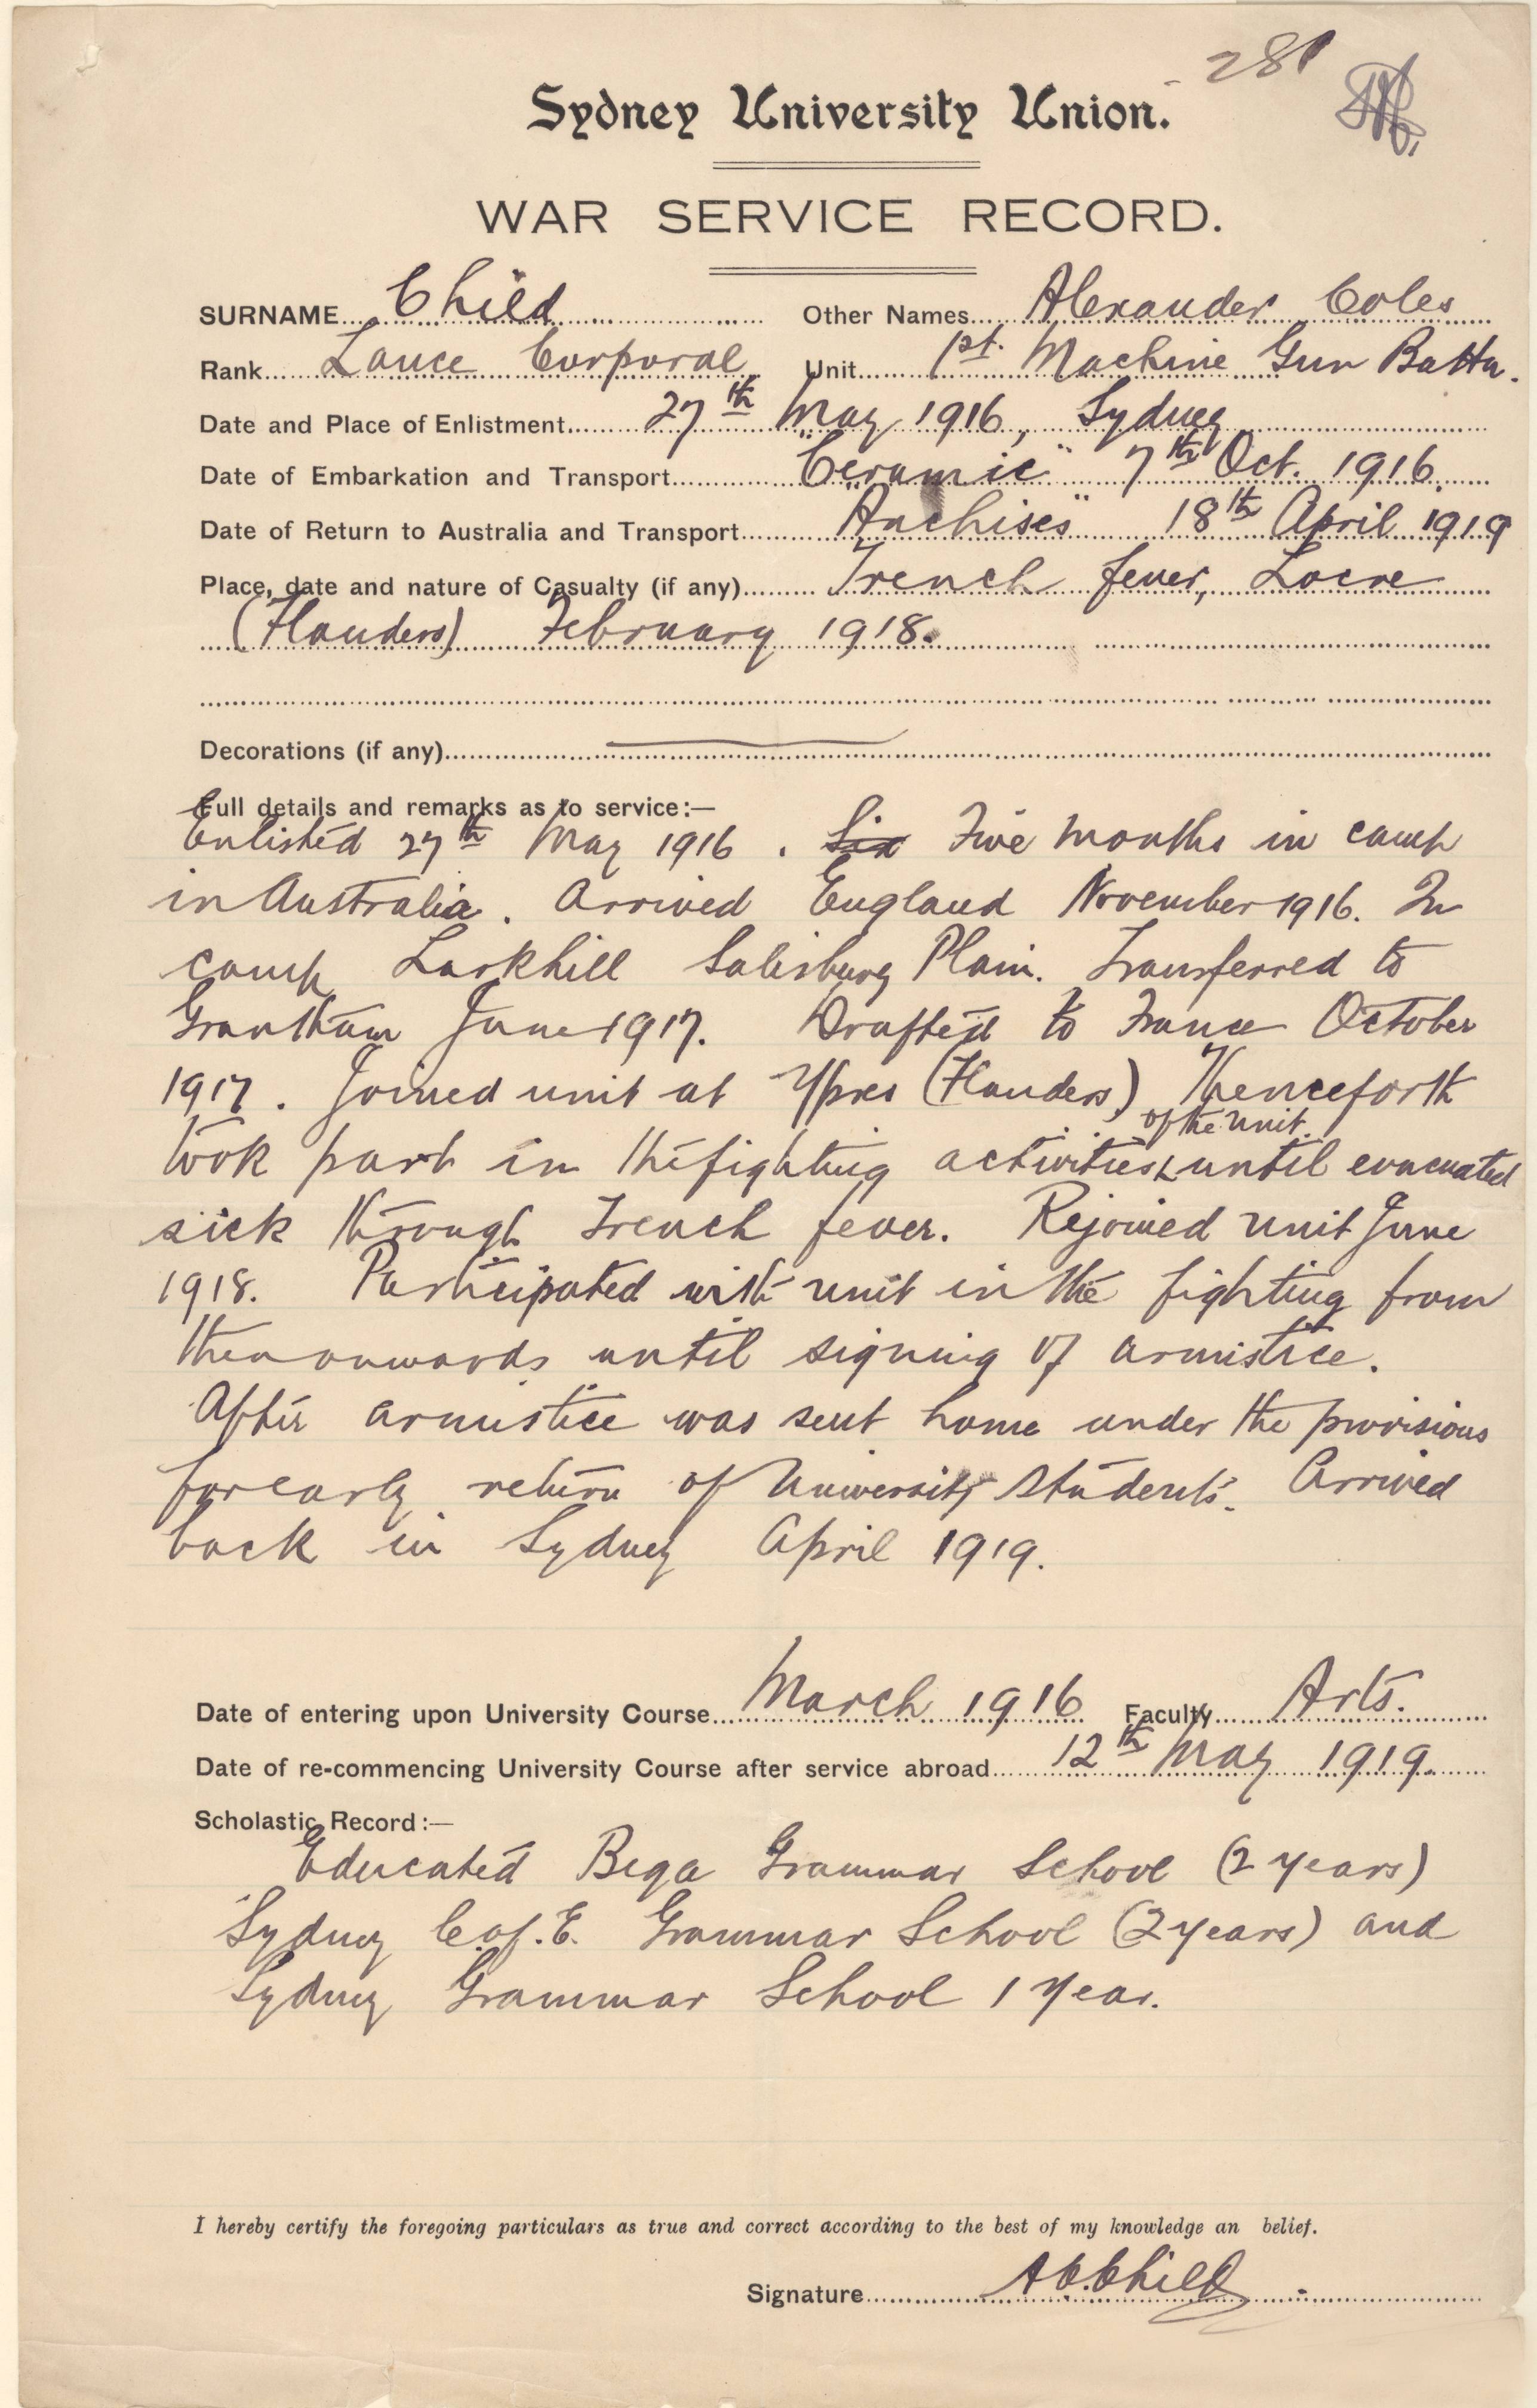 281
Sydney University Union.
WAR SERVICE RECORD.
SURNAME Child Other Names Alexander Coles
Rank Lance Corporal Unit 1st. Machine Gun Battn.
Date and Place of Enlistment 27th May 1916, Sydney
Date of Embarkation and Transport "Ceramic" 7th Oct. 1916.
Date of Return to Australia and Transport "Anchises" 18th April 1919
Place, date and nature of Casualty (if any) Trench fever, Locre
(Flanders) February 1918.
Decorations (if any)
Full details and remarks as to service:—
Enlisted 27th May 1916. Six Five months in camp
in Australia. Arrived England November 1916. In
camp Larkhill Salisbury Plain. Transferred to
Grantham June 1917. Drafted to France October
1917. Joined unit at Ypres (Flanders) Thenceforth
of the unit.
took part in the fighting activities until evacuated
sick through Trench fever. Rejoined unit June
1918. Participated with unit in the fighting from
then onwards until signing of armistice.
After armistice was sent home under the provisions
for early return of University students. Arrived
back in Sydney April 1919.
Date of entering upon University Course March 1916 Faculty Arts.
Date of re-commencing University Course after service abroad 12th May 1919.
Scholastic Record:—
Educated Bega Grammar School (2 years)
Sydney C. of. E. Grammar School (2 years) and
Sydney Grammar School 1 year.
I hereby certify the foregoing particulars as true and correct according to the best of my knowledge an belief.
Signature A C Child